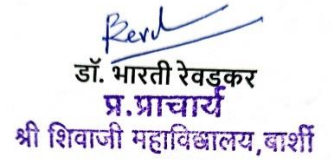 डॉ. भारती रेवडकर
प्र.प्राचार्य
श्री शिवाजी महाविद्यालय,बार्शी